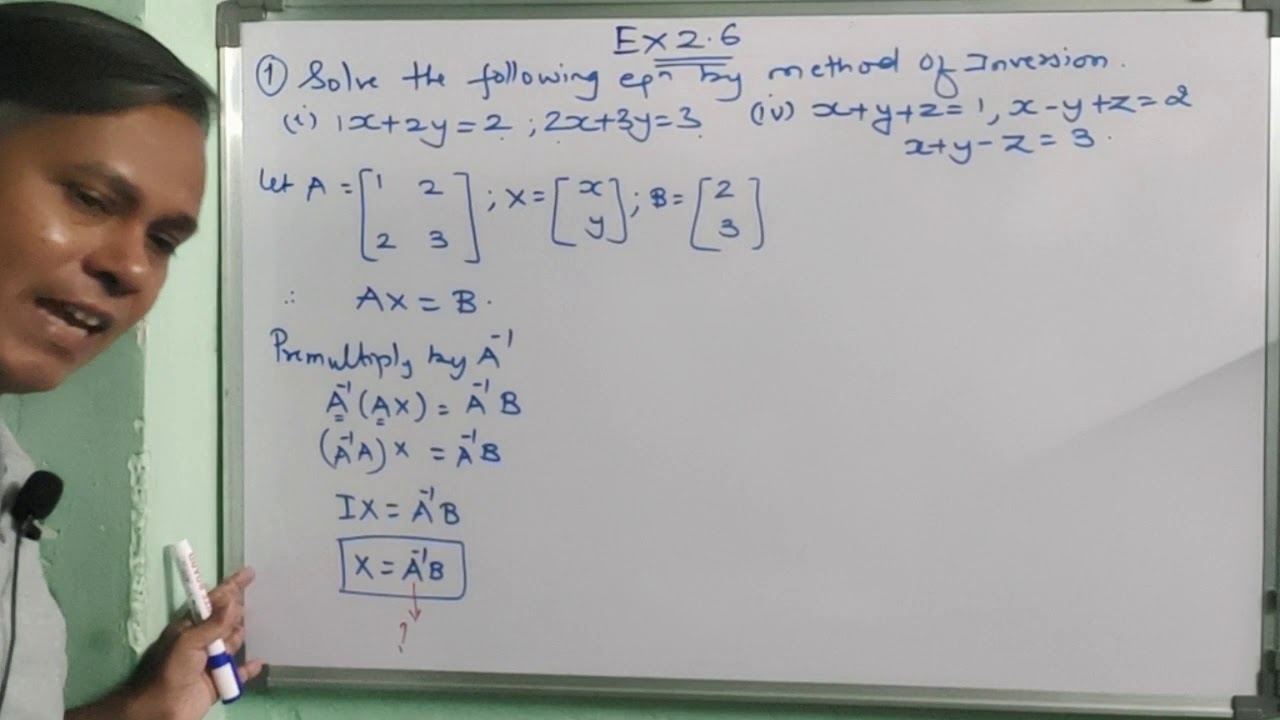 Ex 2.6
① Solve the following eqⁿ by method of Inversion.
(i) 1x+2y=2 ; 2x+3y=3 (iv) x+y+z=1, x-y+z=2
x+y-z=3.
Let A = [1 2 ; X = [x ; B = [2
2 3] y] 3]
∴ AX = B.
Premultiply by A⁻¹
A⁻¹(AX) = A⁻¹B
(A⁻¹A)X = A⁻¹B
IX = A⁻¹B
X = A⁻¹B
?